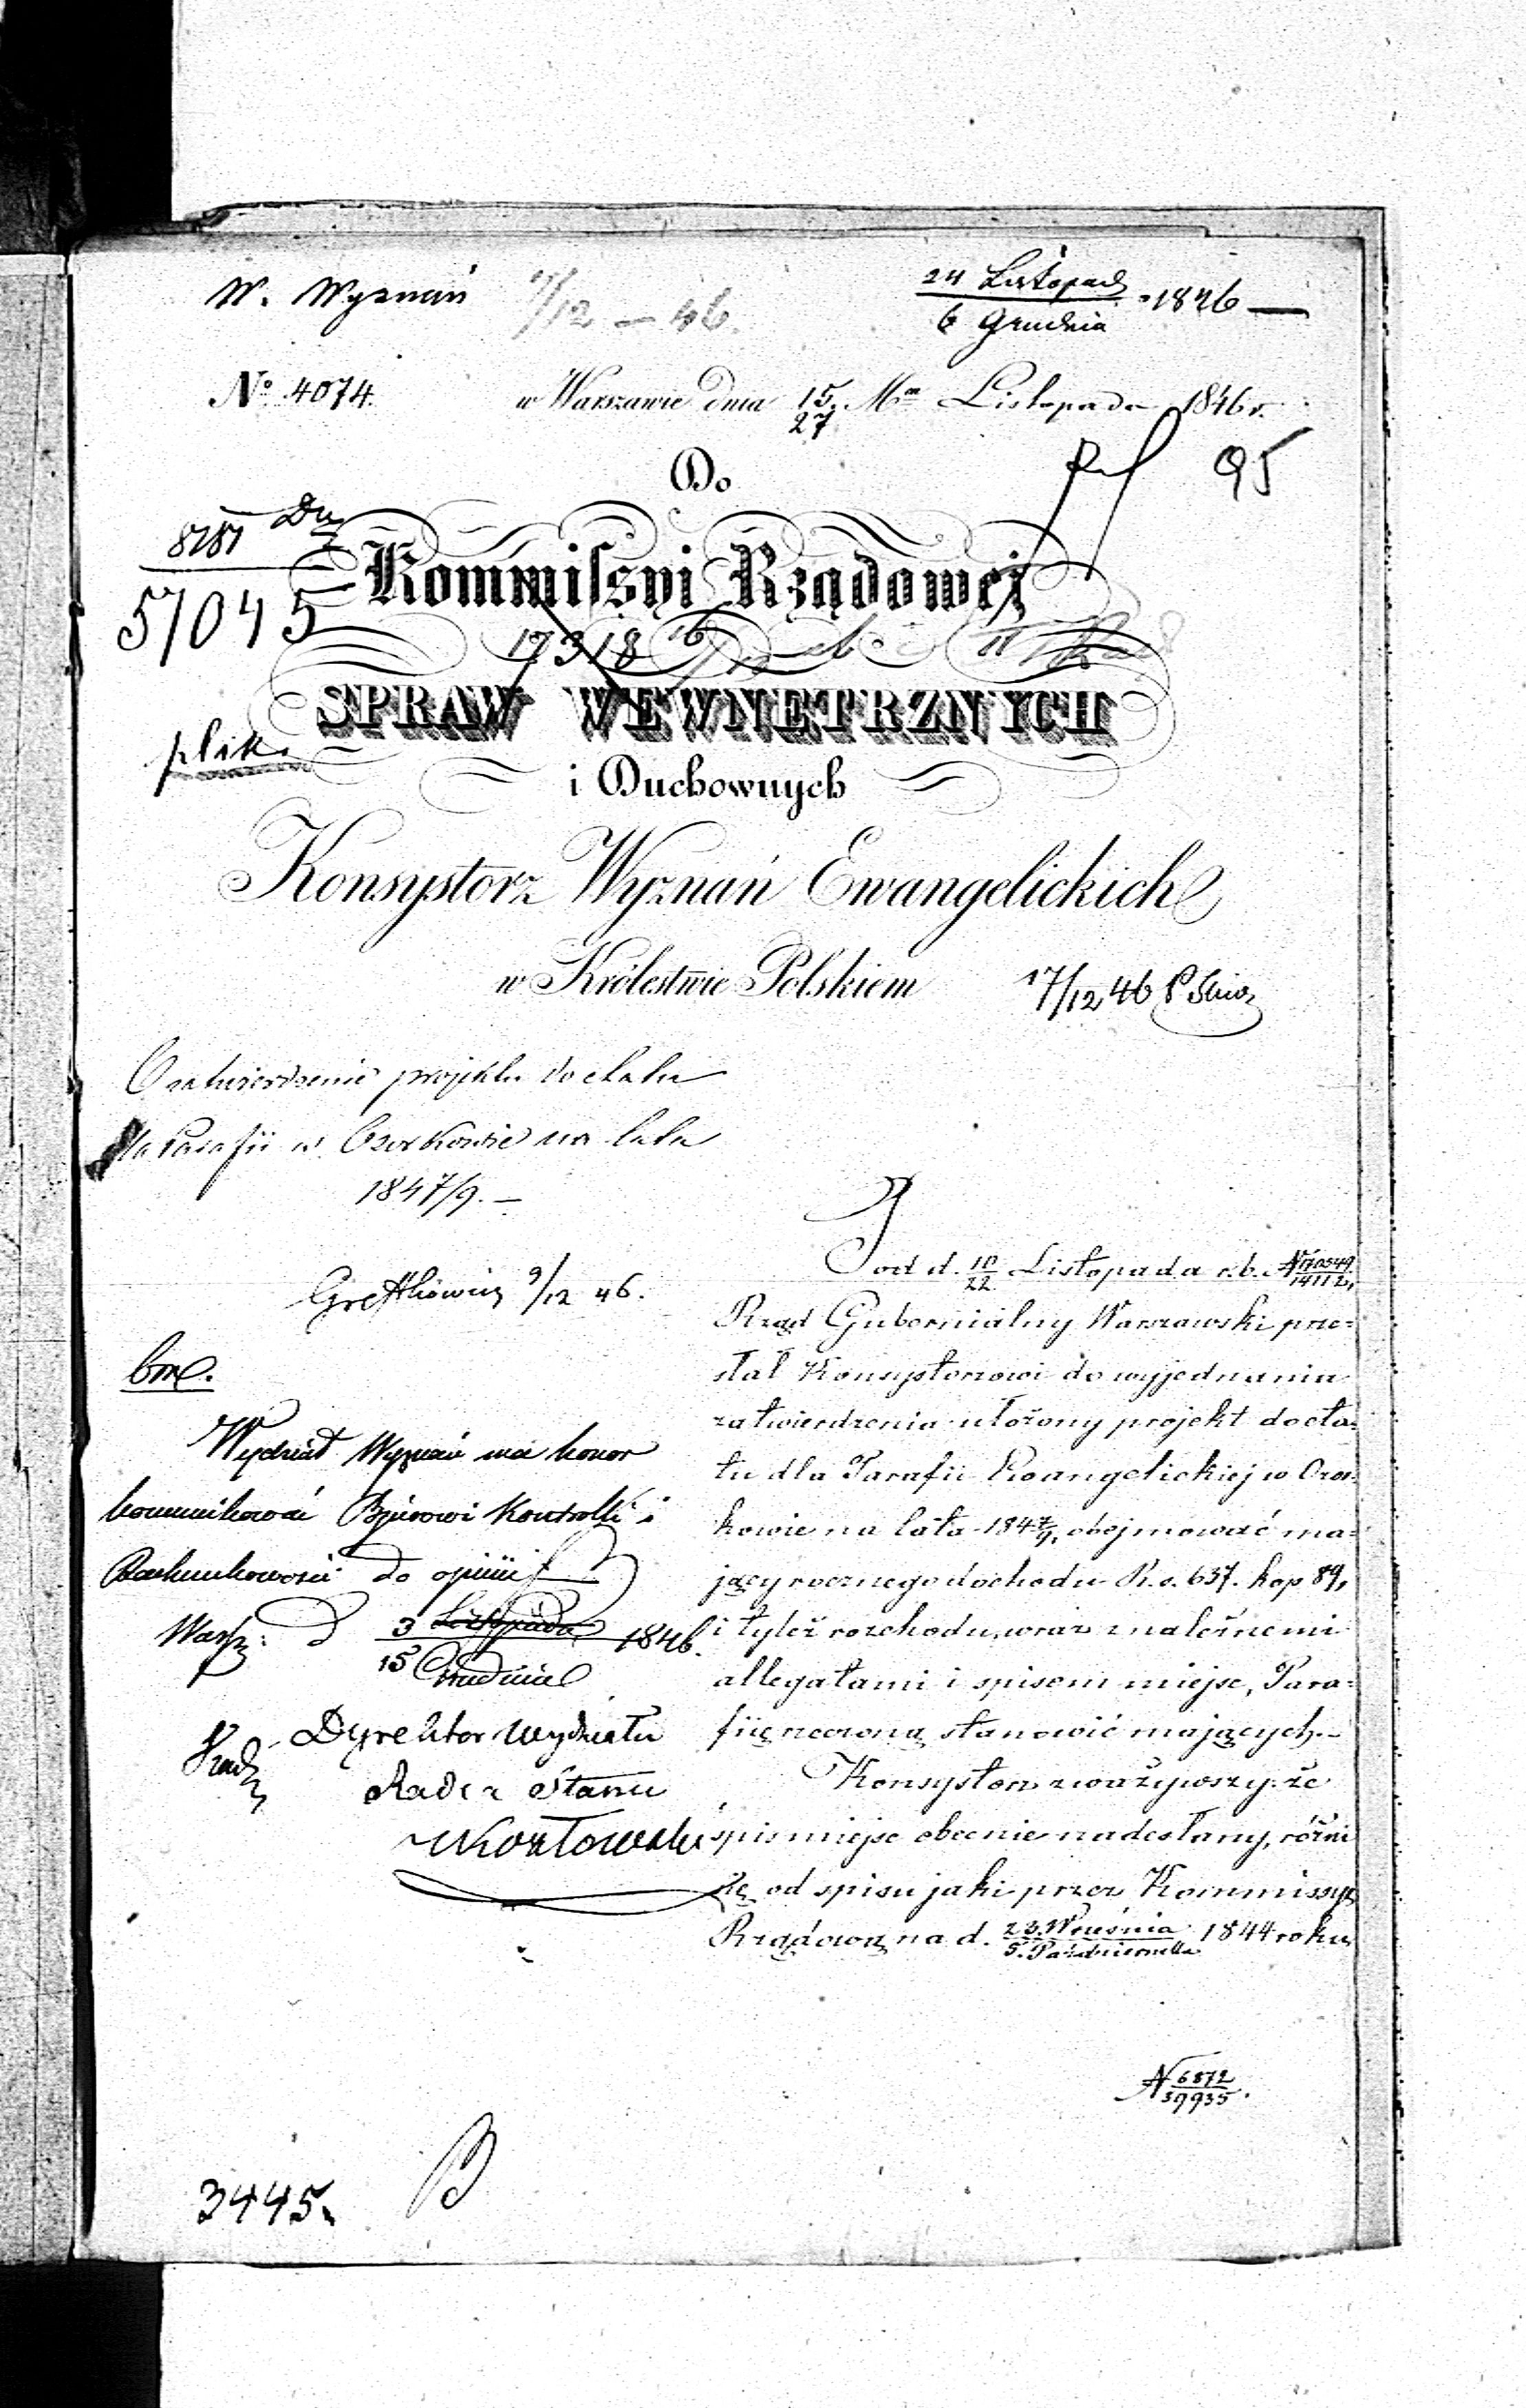 W. Wyznań 9/12 – 46.
24 Listopad / 6 Grudnia 1846 —
№ 4074.
w Warszawie dnia 15/27 Mca Listopada 1846 r.
95
Do
8181
57045
Kommissyi Rządowej
17318
SPRAW WEWNĘTRZNYCH
plik.
i Duchownych
Konsystorz Wyznań Ewangelickich
w Królestwie Polskiem
17/12 46
O zatwierdzenie projektu do etatu
dla Parafii w Ozorkowie na lata
1847/9. —
9/12 46.
Wydział Wyznań ma honor
kommunikować Bjurowi Kontrolli i
Rachunkowości do opinii
Warsz: d 3 Listopada / 15 Grudnia 1846.
Dyrektor Wydziału
Radca Stanu
Kozłowski
Pod d. 10/22 Listopada r.b. N 170549/14112,
Rząd Gubernialny Warszawski prze=
słał Konsystorzowi do wyjednania
zatwierdzenia ułożony projekt do eta=
tu dla Parafii Ewangelickiej w Ozor=
kowie na lata 1847/9, obejmować ma=
jący rocznego dochodu R. s. 637. kop 89,
i tyleż rozchodu, wraz z należnemi
allegatami i spisem miejsc, Para=
fiię rzeczoną stanowić mających.—
Konsystorz zważywszy, że
spis miejsc obecnie nadesłany, różni
się od spisu jaki przez Kommissyę
Rządową na d. 23. Września / 5. Października 1844 roku
N 6872/39935.
3445.